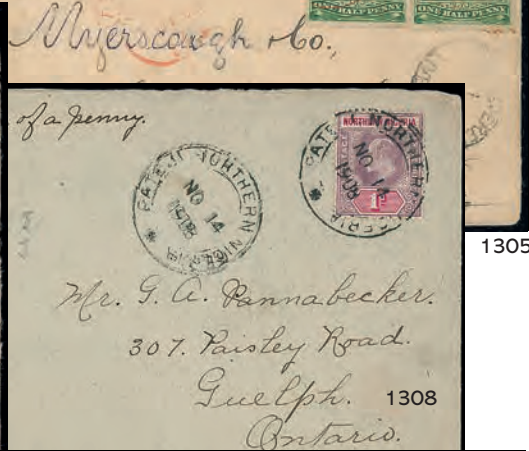 ONE HALF PENNY ONE HALF PENNY
Myerscough & Co.,
of a penny.
PATEJI NORTHERN NIGERIA
NO 14
1908
NORTHERN NIGERIA
POSTAGE
1d
PATEJI NORTHERN NIGERIA
NO 14
1908
1305
Mr. G. A. Pannabecker.
307. Paisley Road.
Guelph.
1308
Ontario.